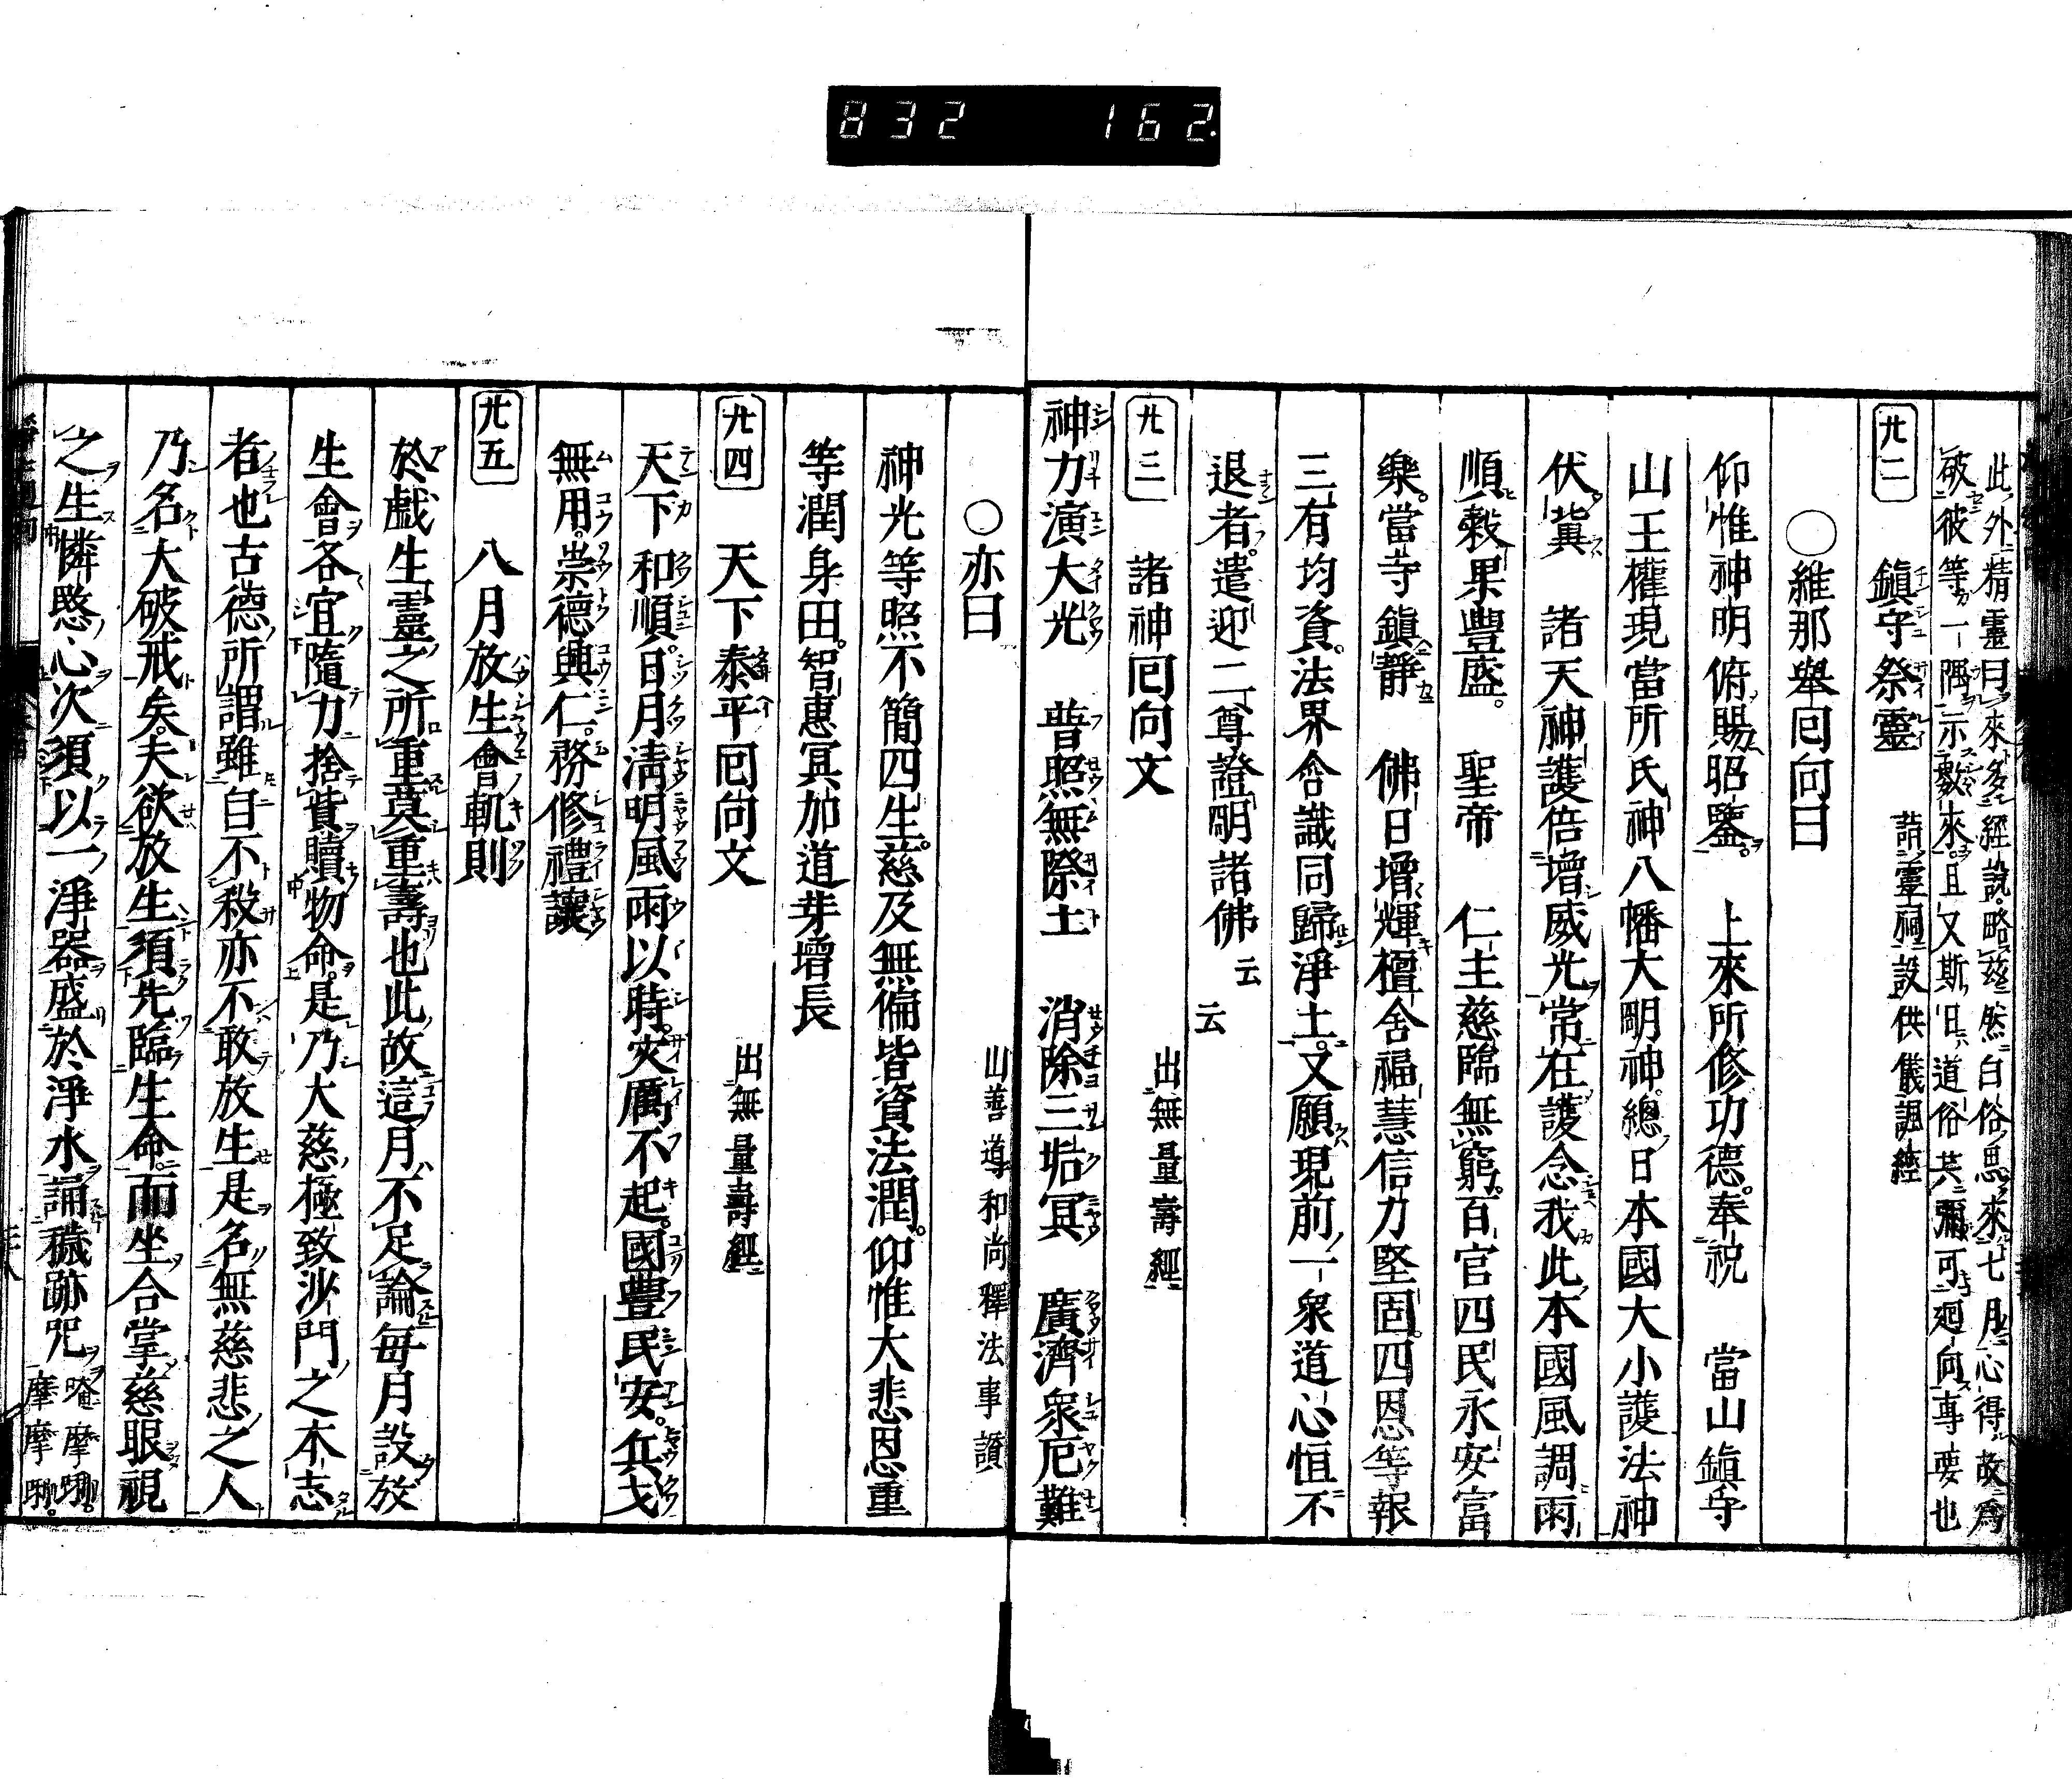 832 162.
此外精靈日來多經說略茲然白俗思來七月心得故爲
破彼等一隅示數來且又斯日道俗共彌可廻向專要也
廿二 鎭守祭靈 詣靈祠設供儀諷經
○維那舉回向曰
仰惟神明俯賜昭鑒。上來所修功德。奉祝 當山鎭守
山王權現當所氏神八幡大明神。總日本國大小護法神
伏冀 諸天神護倍增威光常在護念我此本國風調雨
順穀果豐盛。 聖帝 仁主慈臨無窮。百官四民永安富
樂。當寺鎭靜 佛日增輝檀舍福慧信力堅固。四恩等報
三有均資。法界含識同歸淨土。又願現前一衆道心恒不
退者。遣迎二尊證明諸佛 云云
廿三 諸神回向文 出無量壽經
神力演大光 普照無際土 消除三垢冥 廣濟衆厄難
○亦曰 山善導和尚釋法事讚
神光等照不簡四生。慈及無偏皆資法潤。仰惟大悲恩重
等潤身田。智惠冥加道芽增長
廿四 天下泰平回向文 出無量壽經
天下和順。日月淸明風雨以時。灾厲不起。國豐民安。兵戈
無用。崇德興仁。務修禮讓
廿五 八月放生會軌則
於戲生靈之所重莫重壽也此故這月不足論每月設放
生會各宜隨力捨貲贖物命。是乃大慈極致沙門之本志
者也古德所謂雖自不殺亦不敢放生是名無慈悲之人
乃名大破戒矣。夫欲放生須先臨生命。而坐合掌慈眼視
之生憐愍心次須以一淨器盛於淨水誦穢跡呪 唵摩㖿。摩摩㖿。